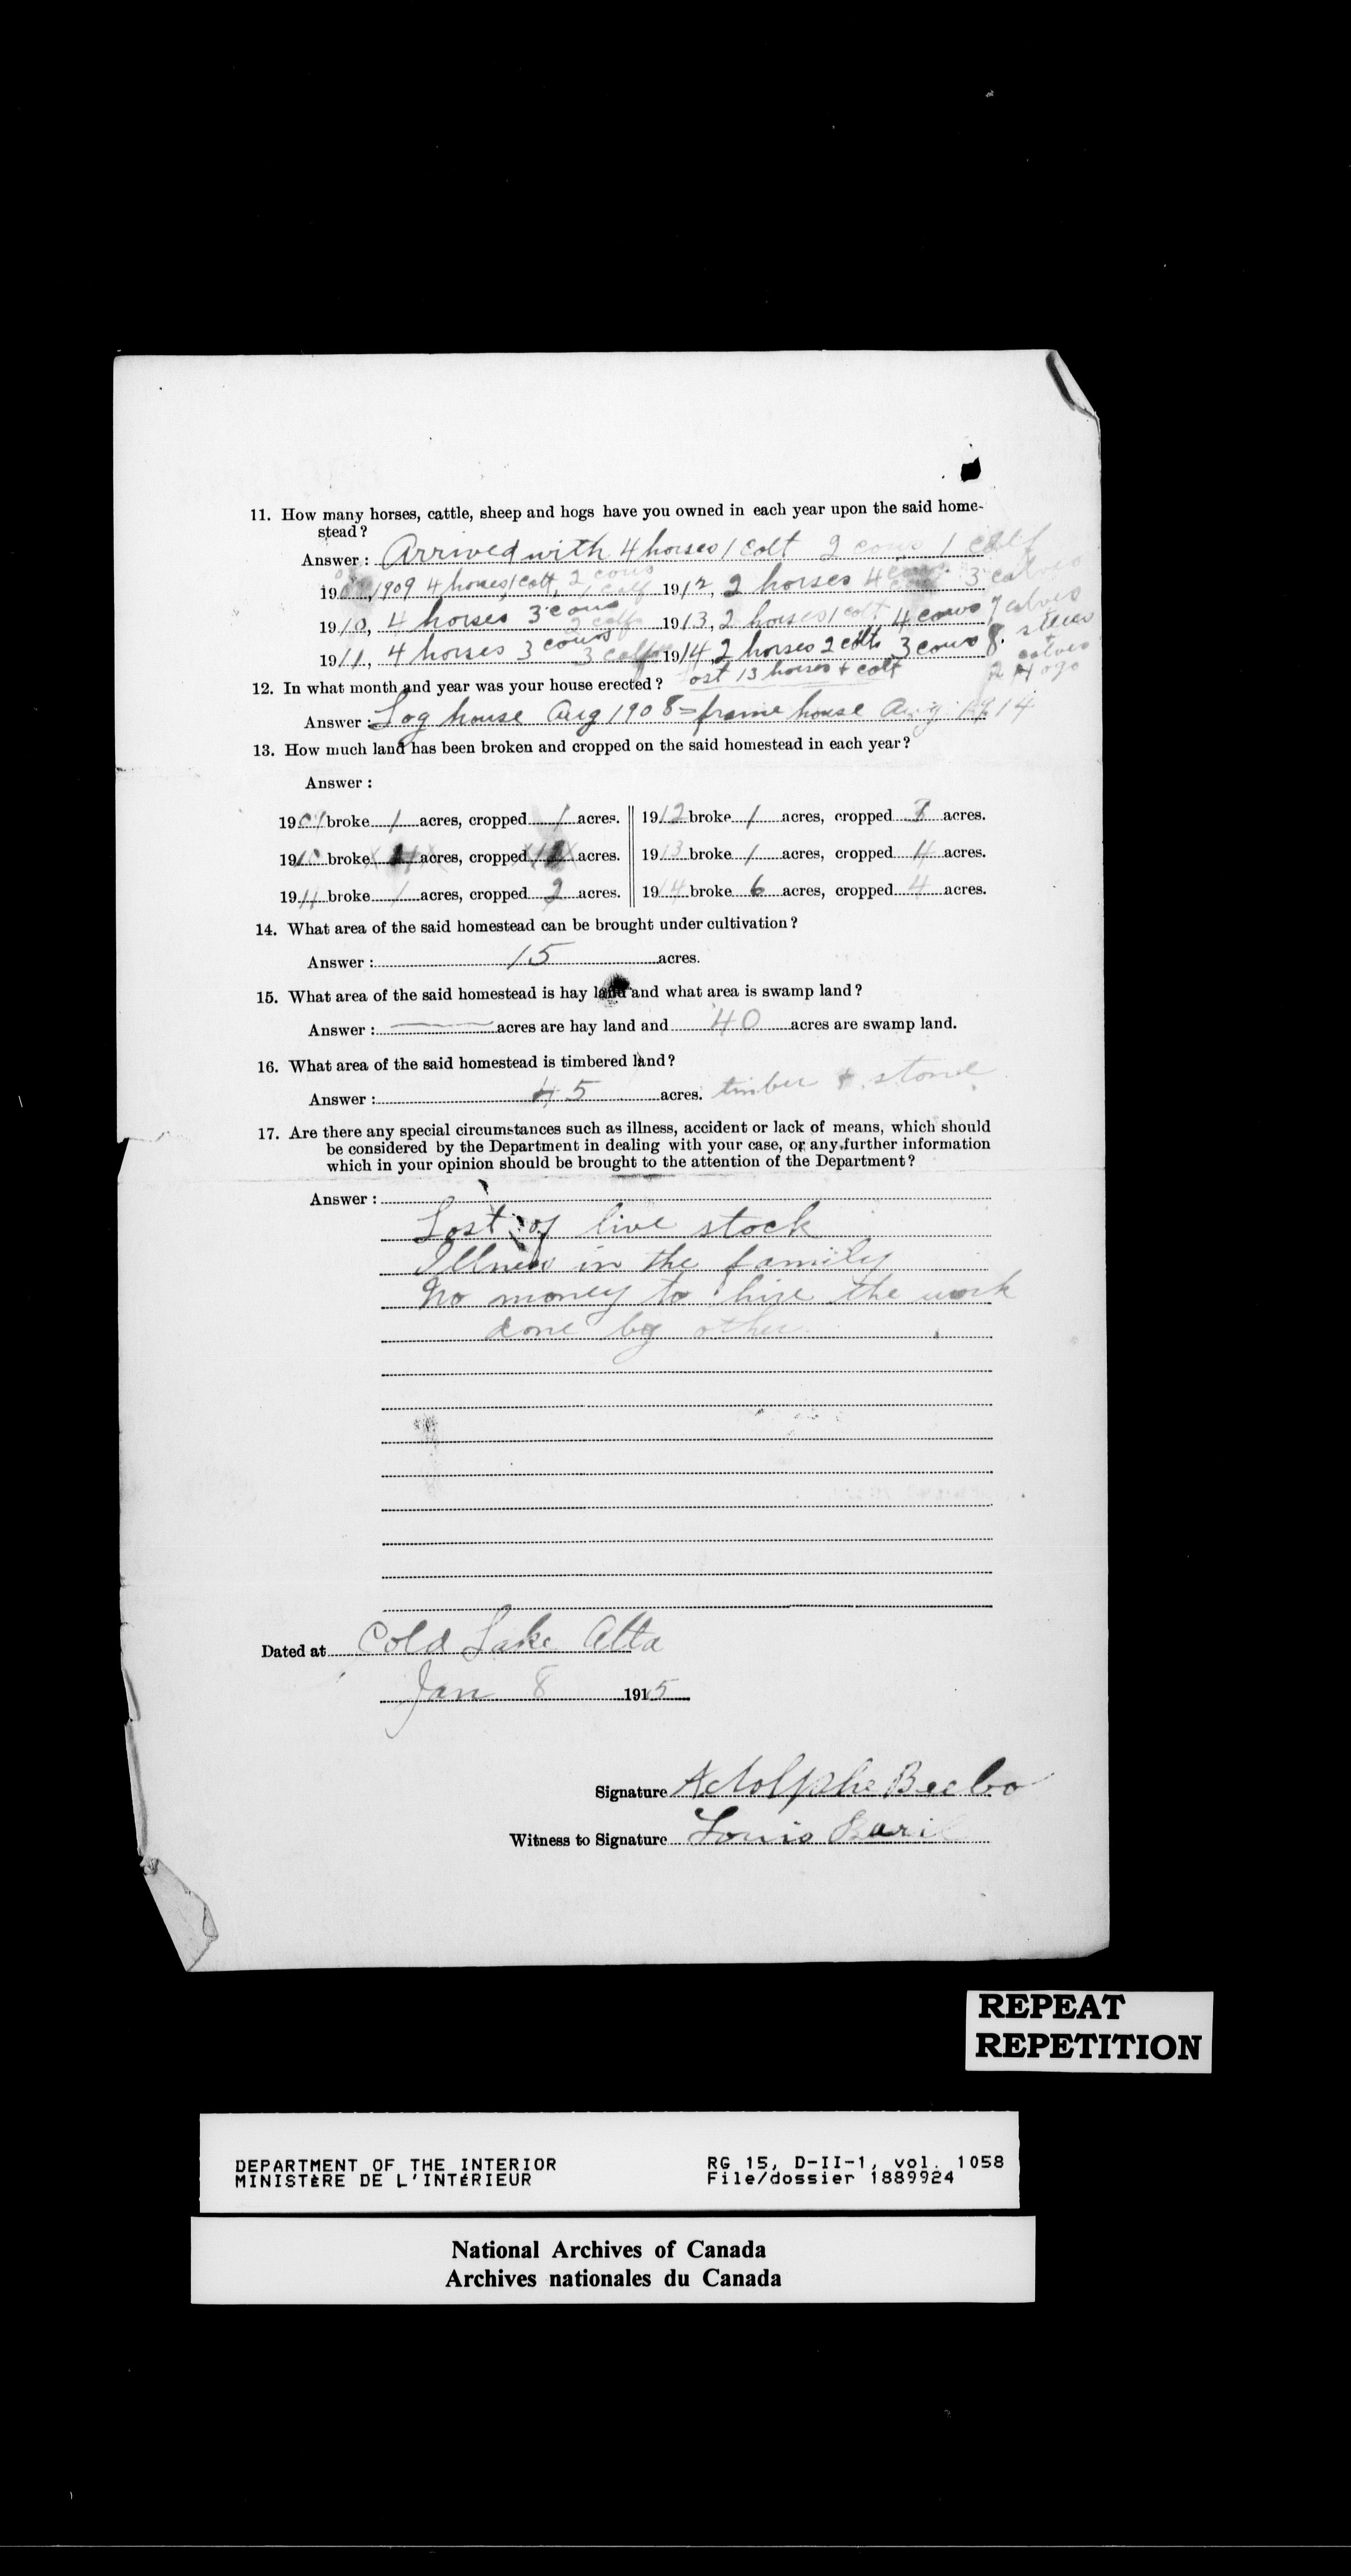 11. How many horses, cattle, sheep and hogs have you owned in each year upon the said home-
stead?
Answer : Arrived with 4 horses 1 colt 2 cows 1 calf
1909 4 horses 1 colt, 2 cows 1 calf 1912, 2 horses 4 cows 3 calves
1910, 4 horses 3 cows 2 calfs 1913, 2 horses 1 colt 4 cows 7 calves
1911, 4 horses 3 cows 3 calfs 1914 2 horses 2 colts 3 cows 8 steers calves
12. In what month and year was your house erected? ost 13 horses + colt 2 Hogs
Answer : Log house Aug 1908 = frame house Aug 1914
13. How much land has been broken and cropped on the said homestead in each year?
Answer :
1909 broke 1 acres, cropped 1 acres. 1912 broke 1 acres, cropped 3 acres.
1910 broke acres, cropped acres. 1913 broke 1 acres, cropped 4 acres.
1911 broke 1 acres, cropped 2 acres. 1914 broke 6 acres, cropped 4 acres.
14. What area of the said homestead can be brought under cultivation?
Answer : 15 acres.
15. What area of the said homestead is hay land and what area is swamp land?
Answer : — acres are hay land and 40 acres are swamp land.
16. What area of the said homestead is timbered land?
Answer : 45 acres. timber + stone
17. Are there any special circumstances such as illness, accident or lack of means, which should
be considered by the Department in dealing with your case, or any further information
which in your opinion should be brought to the attention of the Department?
Answer :
Lost of live stock
Illness in the family
No money to hire the work
done by other.
Dated at Cold Lake Alta
Jan 8 1915
Signature Adolphe Beebo
Witness to Signature Louis Baril
REPEAT
REPETITION
DEPARTMENT OF THE INTERIOR RG 15, D-II-1, vol. 1058
MINISTÈRE DE L'INTÉRIEUR File/dossier 1889924
National Archives of Canada
Archives nationales du Canada